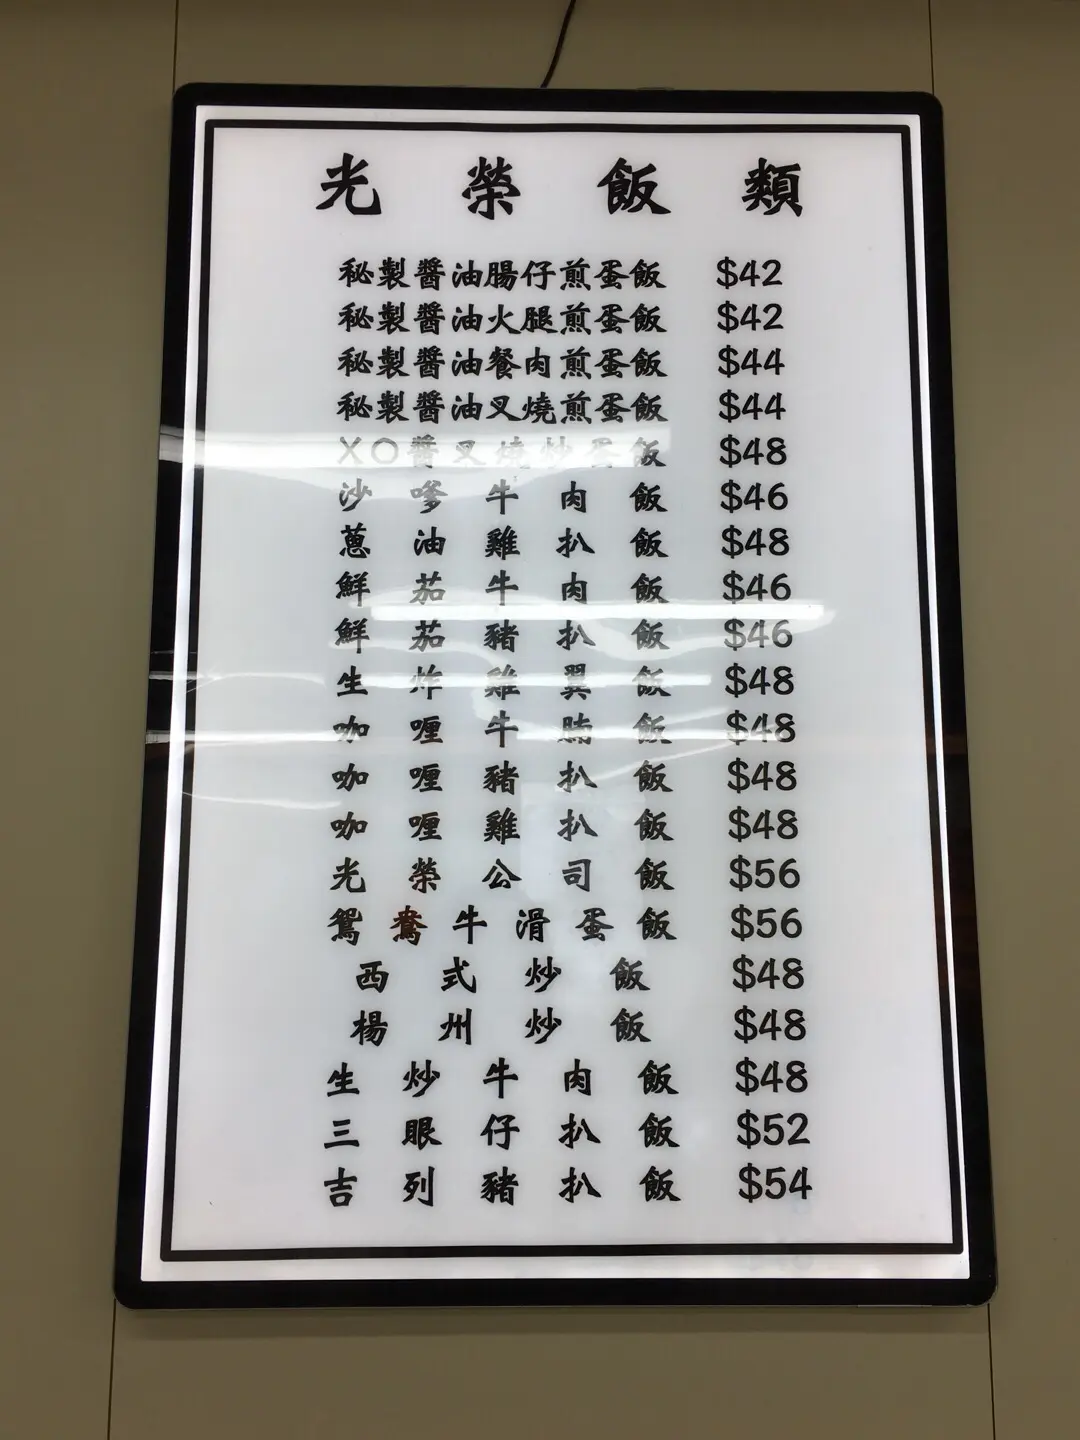 光榮飯類
秘製醬油腸仔煎蛋飯 $42
秘製醬油火腿煎蛋飯 $42
秘製醬油餐肉煎蛋飯 $44
秘製醬油叉燒煎蛋飯 $44
XO醬叉燒炒蛋飯 $48
沙嗲牛肉飯 $46
蔥油雞扒飯 $48
鮮茄牛肉飯 $46
鮮茄豬扒飯 $46
生炸雞翼飯 $48
咖喱牛腩飯 $48
咖喱豬扒飯 $48
咖喱雞扒飯 $48
光榮公司飯 $56
鴛鴦牛滑蛋飯 $56
西式炒飯 $48
楊州炒飯 $48
生炒牛肉飯 $48
三眼仔扒飯 $52
吉列豬扒飯 $54